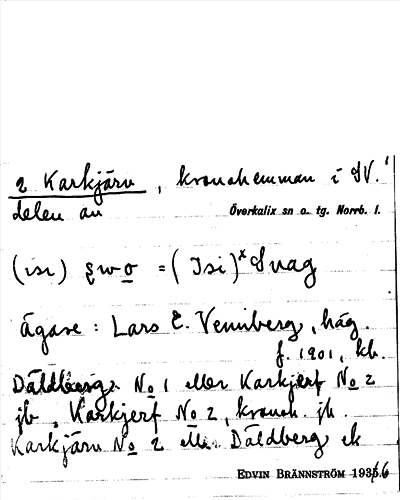 2 Karkjärv, kronohemman i SV.
delen av
Överkalix sn o. tg. Norrb. l.
(isi) swo = (Isi)ˣ Svag
ägare: Lars E. Vennberg, häg.
f. 1901, kb.
Däldberg No 1 eller Karkjerf No 2
jb, Karkjerf No 2, kronoh. jb.
Karkjärv No 2 eller Däldberg ek
EDVIN BRÄNNSTRÖM 1936